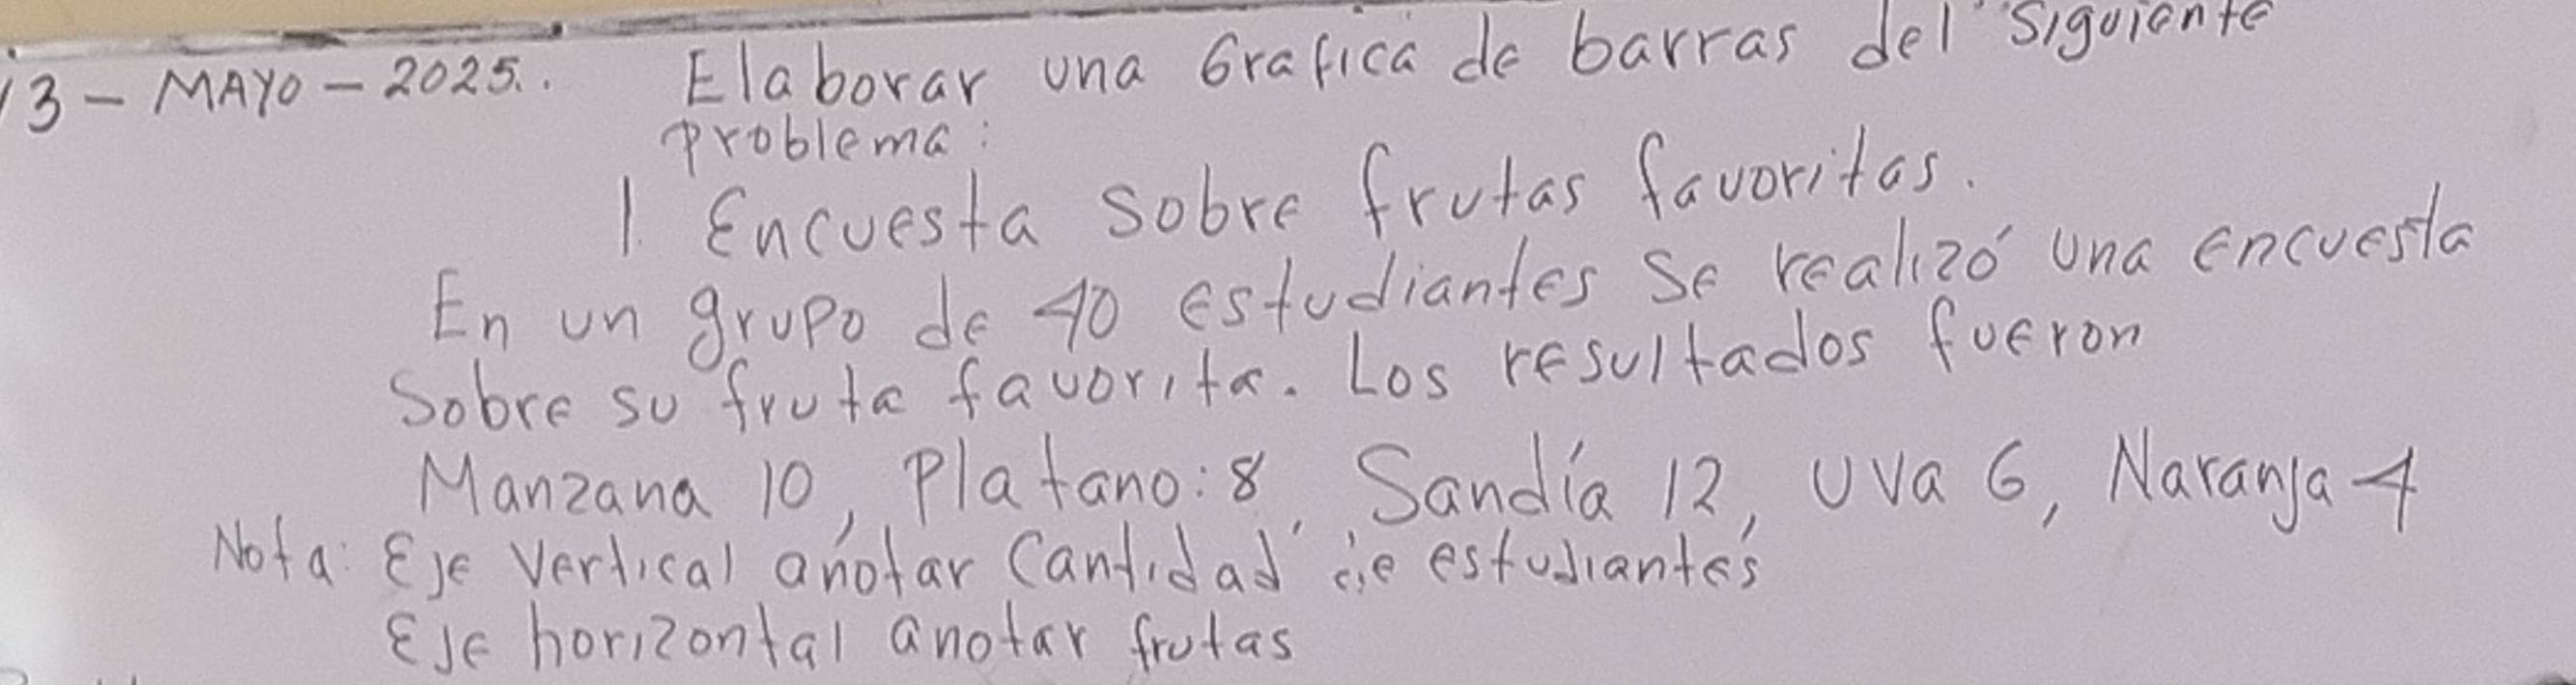 13 - MAYO - 2025. Elaborar una Grafica de barras del siguiente
problema:
1. Encuesta sobre frutas favoritas.
En un grupo de 40 estudiantes se realizó una encuesta
Sobre su fruta favorita. Los resultados fueron
Manzana 10, Platano: 8, Sandía 12, uva 6, Naranja 4
Nota: Eje Vertical anotar Cantidad de estudiantes
Eje horizontal anotar frutas